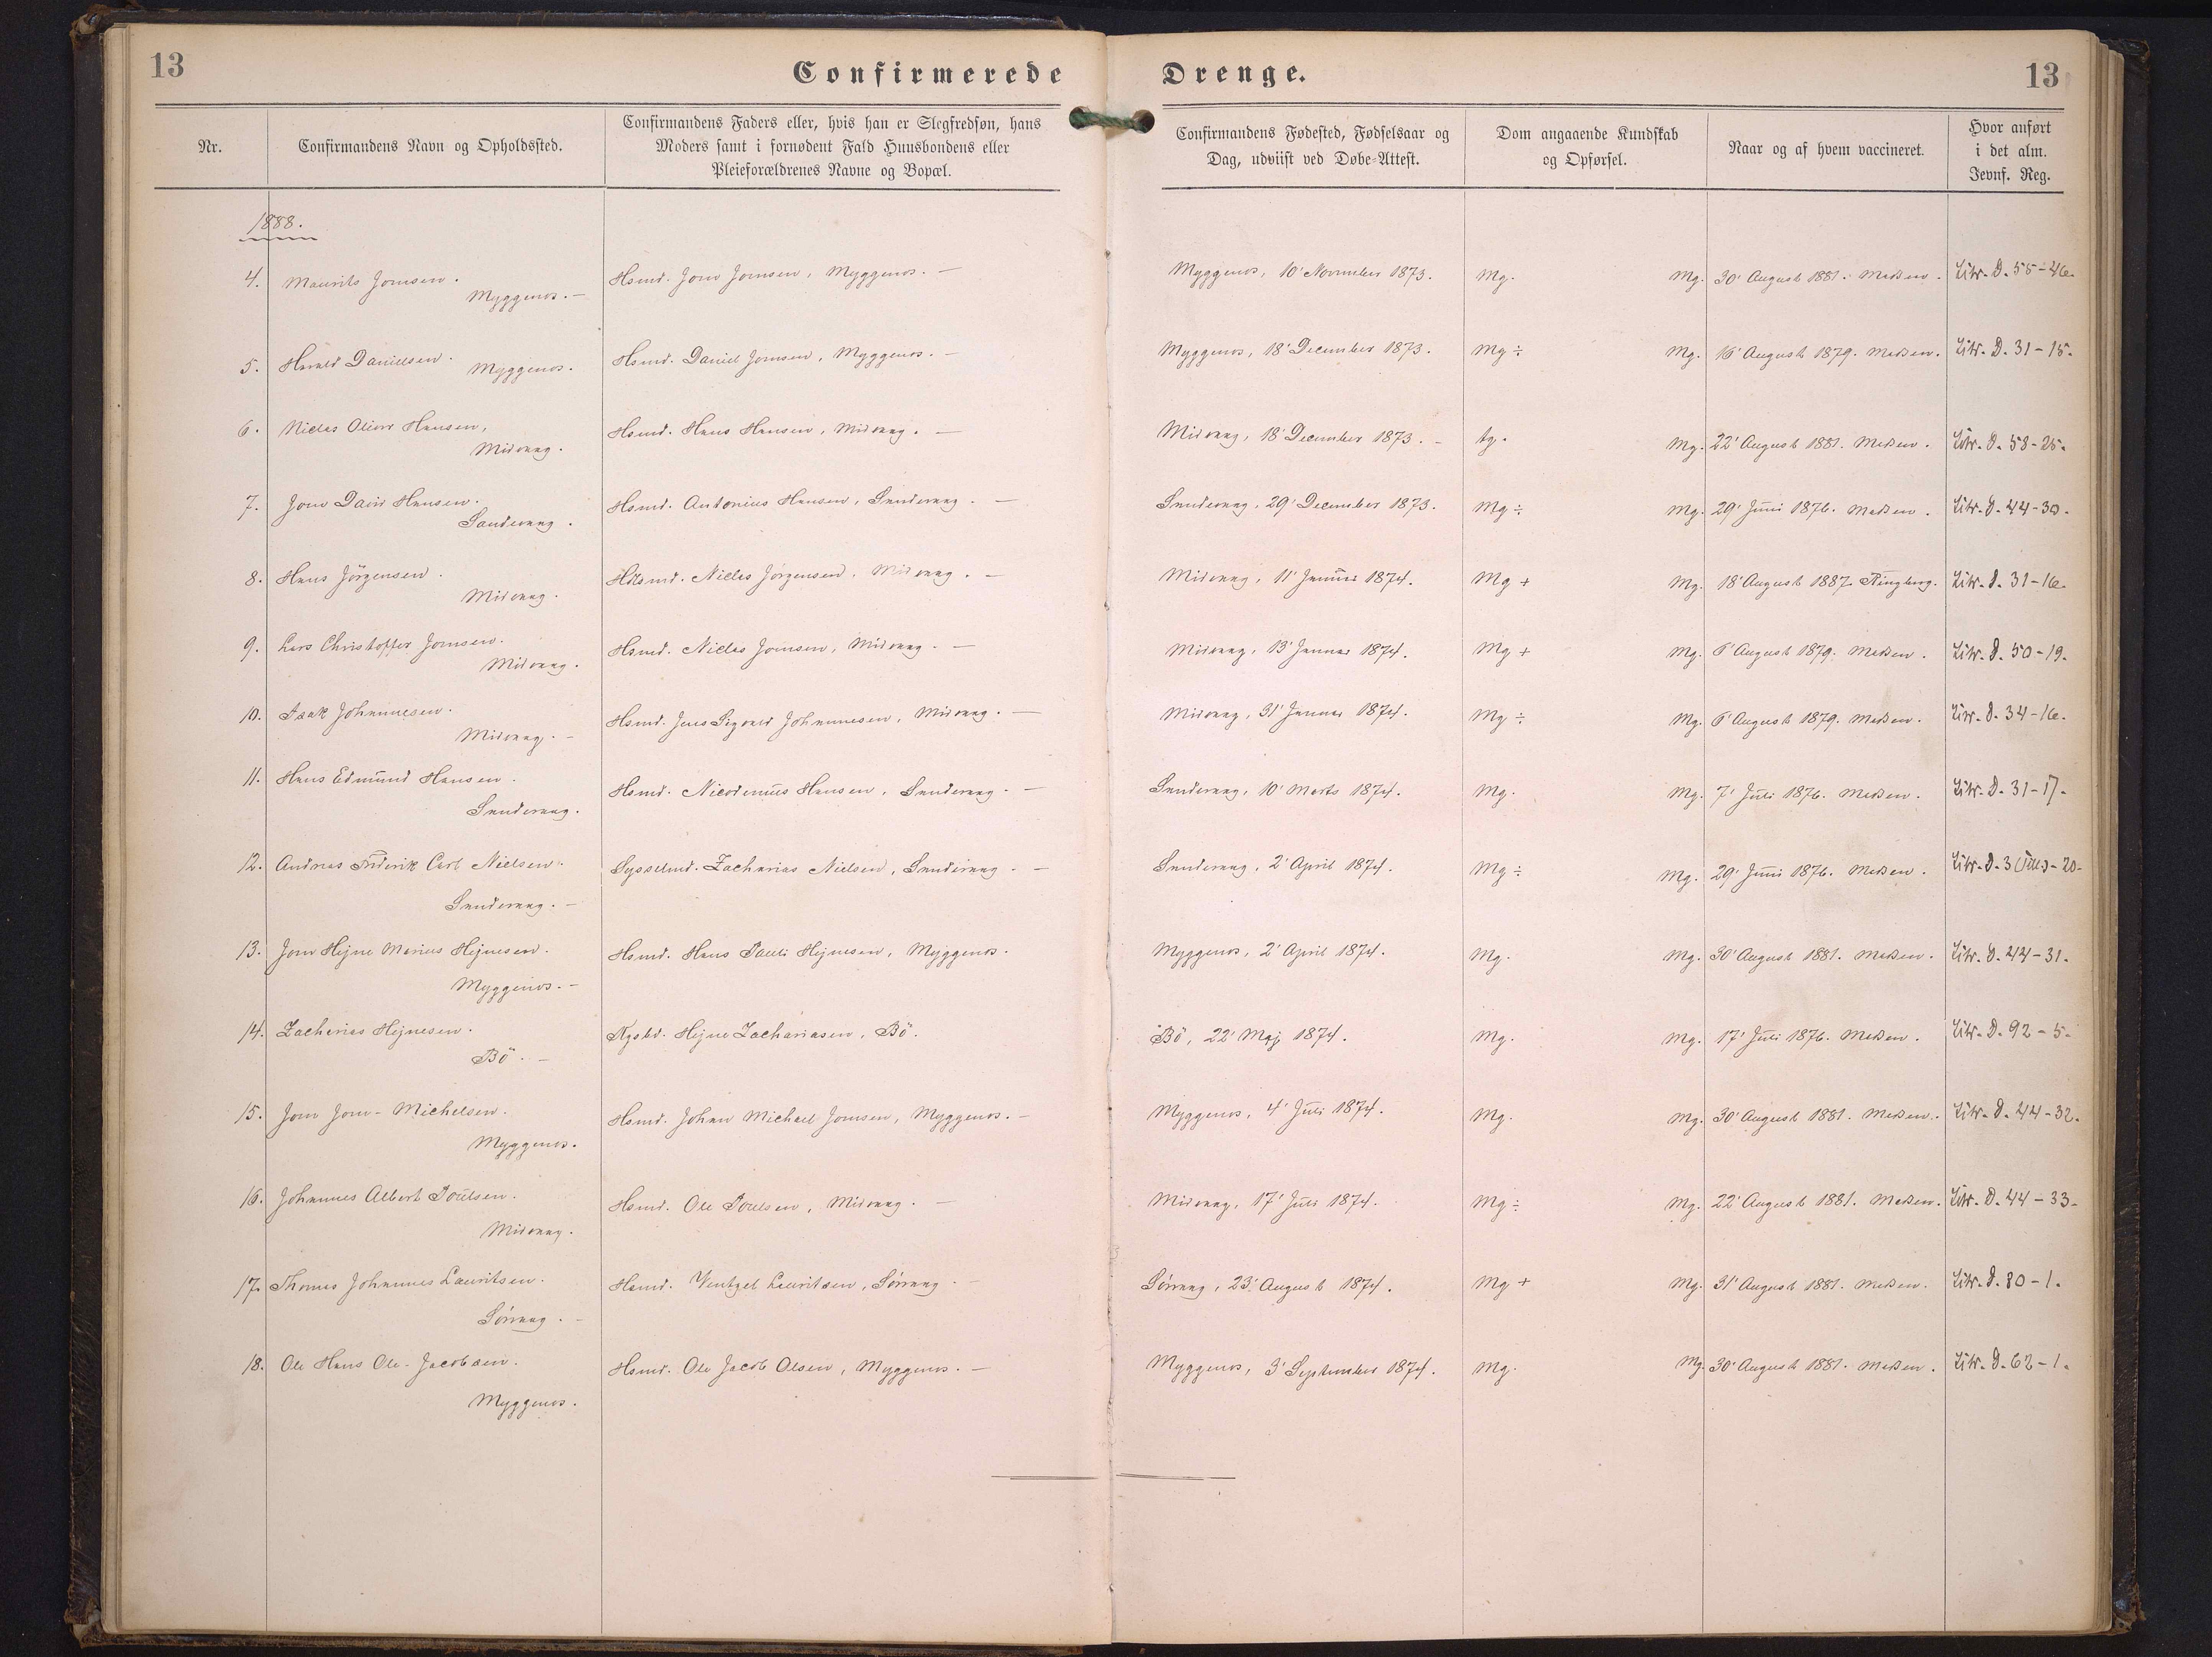 13
Confirmerede Drenge.
13
Nr.
Confirmandens Navn og Opholdssted.
Confirmandens Faders eller, hvis han er Slegfredsøn, hans
Moders samt i fornødent Fald Huusbondens eller
Pleieforældrenes Navne og Bopæl.
Confirmandens Fødested, Fødselsaar og
Dag, udviist ved Døbe-Attest.
Dom angaaende Kundskab
og Opførsel.
Naar og af hvem vaccineret.
Hvor anført
i det alm.
Jevnf. Reg.
1888.
4. Maurits Joensen. Hsmd. Joen Joensen, Myggenæs. — Myggenæs, 10' November 1873. Mg. Mg. 30' August 1881. Madsen. Litr. D. 55-46.
Myggenæs. —
5. Harald Danielsen. Hsmd. Daniel Joensen, Myggenæs. — Myggenæs, 18' December 1873. Mg ÷ Mg. 16' August 1879. Madsen. Litr. D. 31-15.
Myggenæs.
6. Niclas Oliver Hansen, Hsmd. Hans Hansen, Midvaag. — Midvaag, 18' December 1873. — tg. Mg. 22' August 1881. Madsen. Litr. D. 58-25.
Midvaag.
7. Joen David Hansen. Hsmd. Antonius Hansen, Sandevaag. — Sandevaag, 29' December 1873. Mg ÷ Mg. 29' Juni 1876. Madsen. Litr. D. 44-30.
Sandevaag.
8. Hans Jörgensen. Niclas Jörgensen, Midvaag. — Midvaag, 11' Januar 1874. Mg + Mg. 18' August 1887. Ringberg. Litr. D. 31-16.
Midvaag.
9. Lars Christoffer Joensen. Hsmd. Niclas Joensen, Midvaag. — Midvaag, 13' Januar 1874. Mg + Mg. 6' August 1879. Madsen. Litr. D. 50-19.
Midvaag.
10. Isak Johannesen. Hsmd. Jens Sigvald Johannesen, Midvaag. — Midvaag, 31' Januar 1874. Mg ÷ Mg. 6' August 1879. Madsen. Litr. D. 34-16.
Midvaag. —
11. Hans Edmund Hansen. Hsmd. Nicodemus Hansen, Sandevaag. — Sandevaag, 10' Marts 1874. Mg. Mg. 7' Juli 1876. Madsen. Litr. D. 31-17.
Sandevaag.
12. Andreas Frederik Carl Nielsen. Sysselmd. Zacharias Nielsen, Sandevaag. — Sandevaag, 2' April 1874. Mg ÷ Mg. 29' Juni 1876. Madsen. Litr. D. 3 -20.
Sandevaag. —
13. Joen Hejne Marius Hejnesen. Hsmd. Hans Pauli Hejnesen, Myggenæs. Myggenæs, 2' April 1874. Mg. Mg. 30' August 1881. Madsen. Litr. D. 44-31.
Myggenæs. —
14. Zacharias Hejnesen. Hejne Zachariasen, Bö. Bö, 22' Maj 1874. Mg. Mg. 17' Juli 1876. Madsen. Litr. D. 92-5.
Bö. —
15. Joen Joen-Michelsen. Hsmd. Johan Michael Joensen, Myggenæs. — Myggenæs, 4' Juli 1874. Mg. Mg. 30' August 1881. Madsen. Litr. D. 44-32.
Myggenæs.
16. Johannes Albert Poulsen. Hsmd. Ole Poulsen, Midvaag. — Midvaag, 17' Juli 1874. Mg ÷ Mg. 22' August 1881. Madsen. Litr. D. 44-33.
Midvaag.
17. Thomas Johannes Lauritsen. Hsmd. Ventzel Lauritsen, Sörvaag. — Sörvaag, 23' August 1874. Mg + Mg. 31' August 1881. Madsen. Litr. D. 80-1.
Sörvaag. —
18. Ole Hans Ole-Jacobsen. Hsmd. Ole Jacob Olsen, Myggenæs. — Myggenæs, 3' September 1874. Mg. Mg. 30' August 1881. Madsen. Litr. D. 62-1.
Myggenæs.